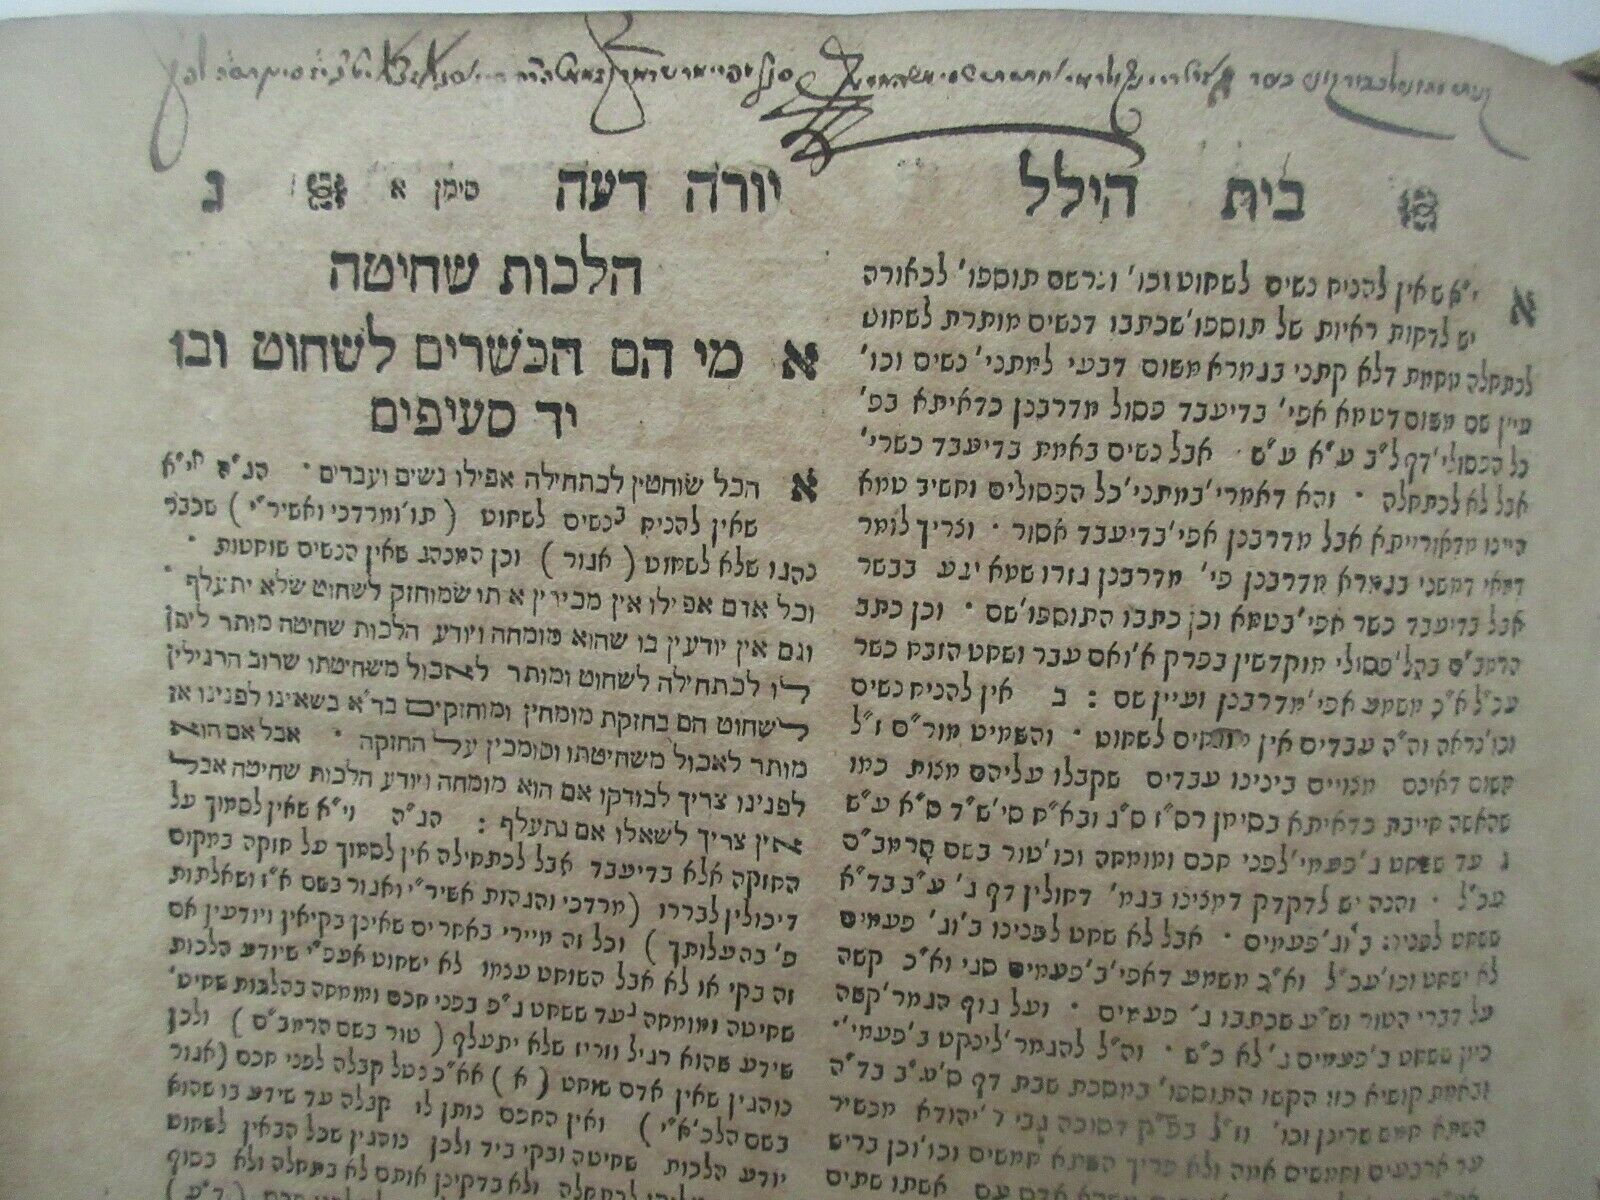 בית הילל
יורה דעה סימן א ג
א י"א שאין להניח נשים לשחוט וכו' ונרשם תוספו' לכאורה
יש לדחות ראיות של תוספו' שכתבו דנשים מותרת לשחוט
לכתחלה מחמת דלא קתני בגמרא משום דבעי למתני' נשים וכו'
עיין שם משום דטמא אפי' בדיעבד פסול מדרבנן כדאיתא בפ'
כל הפסולי' דף ל"ב ע"א ע"ש אבל נשים באמת בדיעבד כשרי'
אבל לא לכתחלה והא דאמרי' במתני' כל הפסולים וחשיב טמא
היינו מדאורייתא אבל מדרבנן אפי' בדיעבד אסור וצריך לומר
דמאי דמשני בגמרא מדרבנן פי' מדרבנן גזרו שמא יגע בבשר
אבל בדיעבד כשר אפי' בטמא וכן כתבו התוספו' שם וכן כתב
הרמב"ם בהל' פסולי מוקדשין בפרק א' ואם עבר ושחט הזבח כשר
עכ"ל א"כ משמע אפי' מדרבנן ועיין שם : ב אין להניח נשים
וכו' נראה וה"ה עבדים אין מניחים לשחוט והשמיט מור"ם ז"ל
משום דאינם מצויים בינינו עבדים שקבלו עליהם מצות כמו
שהאשה חייבת כדאיתא בסימן רס"ז ס"ג ובא"ח סי' ש"ד ס"א ע"ש
ג עד ששחט ג' פעמי' לפני חכם ומומחה וכו' טור בשם הרמב"ם
עכ"ל והנה יש לדקדק דמצינו בגמ' דחולין דף ג' ע"ב בד"א
ששחט לפנינו ב' וג' פעמים אבל לא שחט לפנינו ב' וג' פעמים
לא ישחט וכו' עכ"ל וא"כ משמע דאפי' ב' פעמים סגי וא"כ קשה
על דברי הטור וש"ע שכתבו ג' פעמים ועל גוף הגמר' קשה
כיון ששחט ב' פעמים ג' לא כ"ש וה"ל להגמר' לינקט ב' פעמי'
ובאמת קושיא כזו הקשו התוספו' במסכת שבת דף ס' ע"ב בד"ה
השתא חמש שרינן וכו' וז"ל בפ"ק דסוכה גבי ר' יהודא מכשיר
עד ארבעים וחמשים אמה ולא פריך השתא חמשים וכו' וכן בריש
הלכות שחיטה
א מי הם הכשרים לשחוט ובו
יד סעיפים
א הכל שוחטין לכתחילה אפילו נשים ועבדים הג"ה וי"א
שאין להניח נשים לשחוט ( תו' ומרדכי ואשיר"י ) שכבר
נהגו שלא לשחוט ( אגור ) וכן המנהג שאין הנשים שוחטות
וכל אדם אפילו אין מכירין אותו שמוחזק לשחוט שלא יתעלף
וגם אין יודעין בו שהוא מומחה ויודע הלכות שחיטה מותר ליתן
לו לכתחילה לשחוט ומותר לאכול משחיטתו שרוב הרגילין
לשחוט הם בחזקת מומחין ומוחזקים בד"א בשאינו לפנינו אז
מותר לאכול משחיטתו וסומכין על החזקה אבל אם הוא
לפנינו צריך לבודקו אם הוא מומחה ויודע הלכות שחיטה אבל
אין צריך לשאלו אם נתעלף : הג"ה וי"א שאין לסמוך על
החזקה אלא בדיעבד אבל לכתחילה אין לסמוך על חזקה במקום
דיכולין לבררו (מרדכי והגהות אשיר"י ואגור בשם א"ז ושאלתות
פ' בהעלותך ) וכל זה מיירי באחרים שאינן בקיאין ויודעין אם
זה בקי או לא אבל השוחט עצמו לא ישחוט אעפ"י שיודע הלכות
שחיטה ומומחה עד ששחט ג"פ בפני חכם ומומחה בהלכות שחיט'
שידע שהוא רגיל וזריז שלא יתעלף ( טור בשם הרמב"ם ) ולכן
נוהגין שאין אדם שוחט ( א ) אא"כ נטל קבלה לפני חכם (אגור
בשם הלכ' א"י ) ואין החכם נותן לו קבלה עד שידע בו שהוא
יודע הלכות שחיטה ובקי ביד ולכן נוהגין שכל הבאין לשחוט